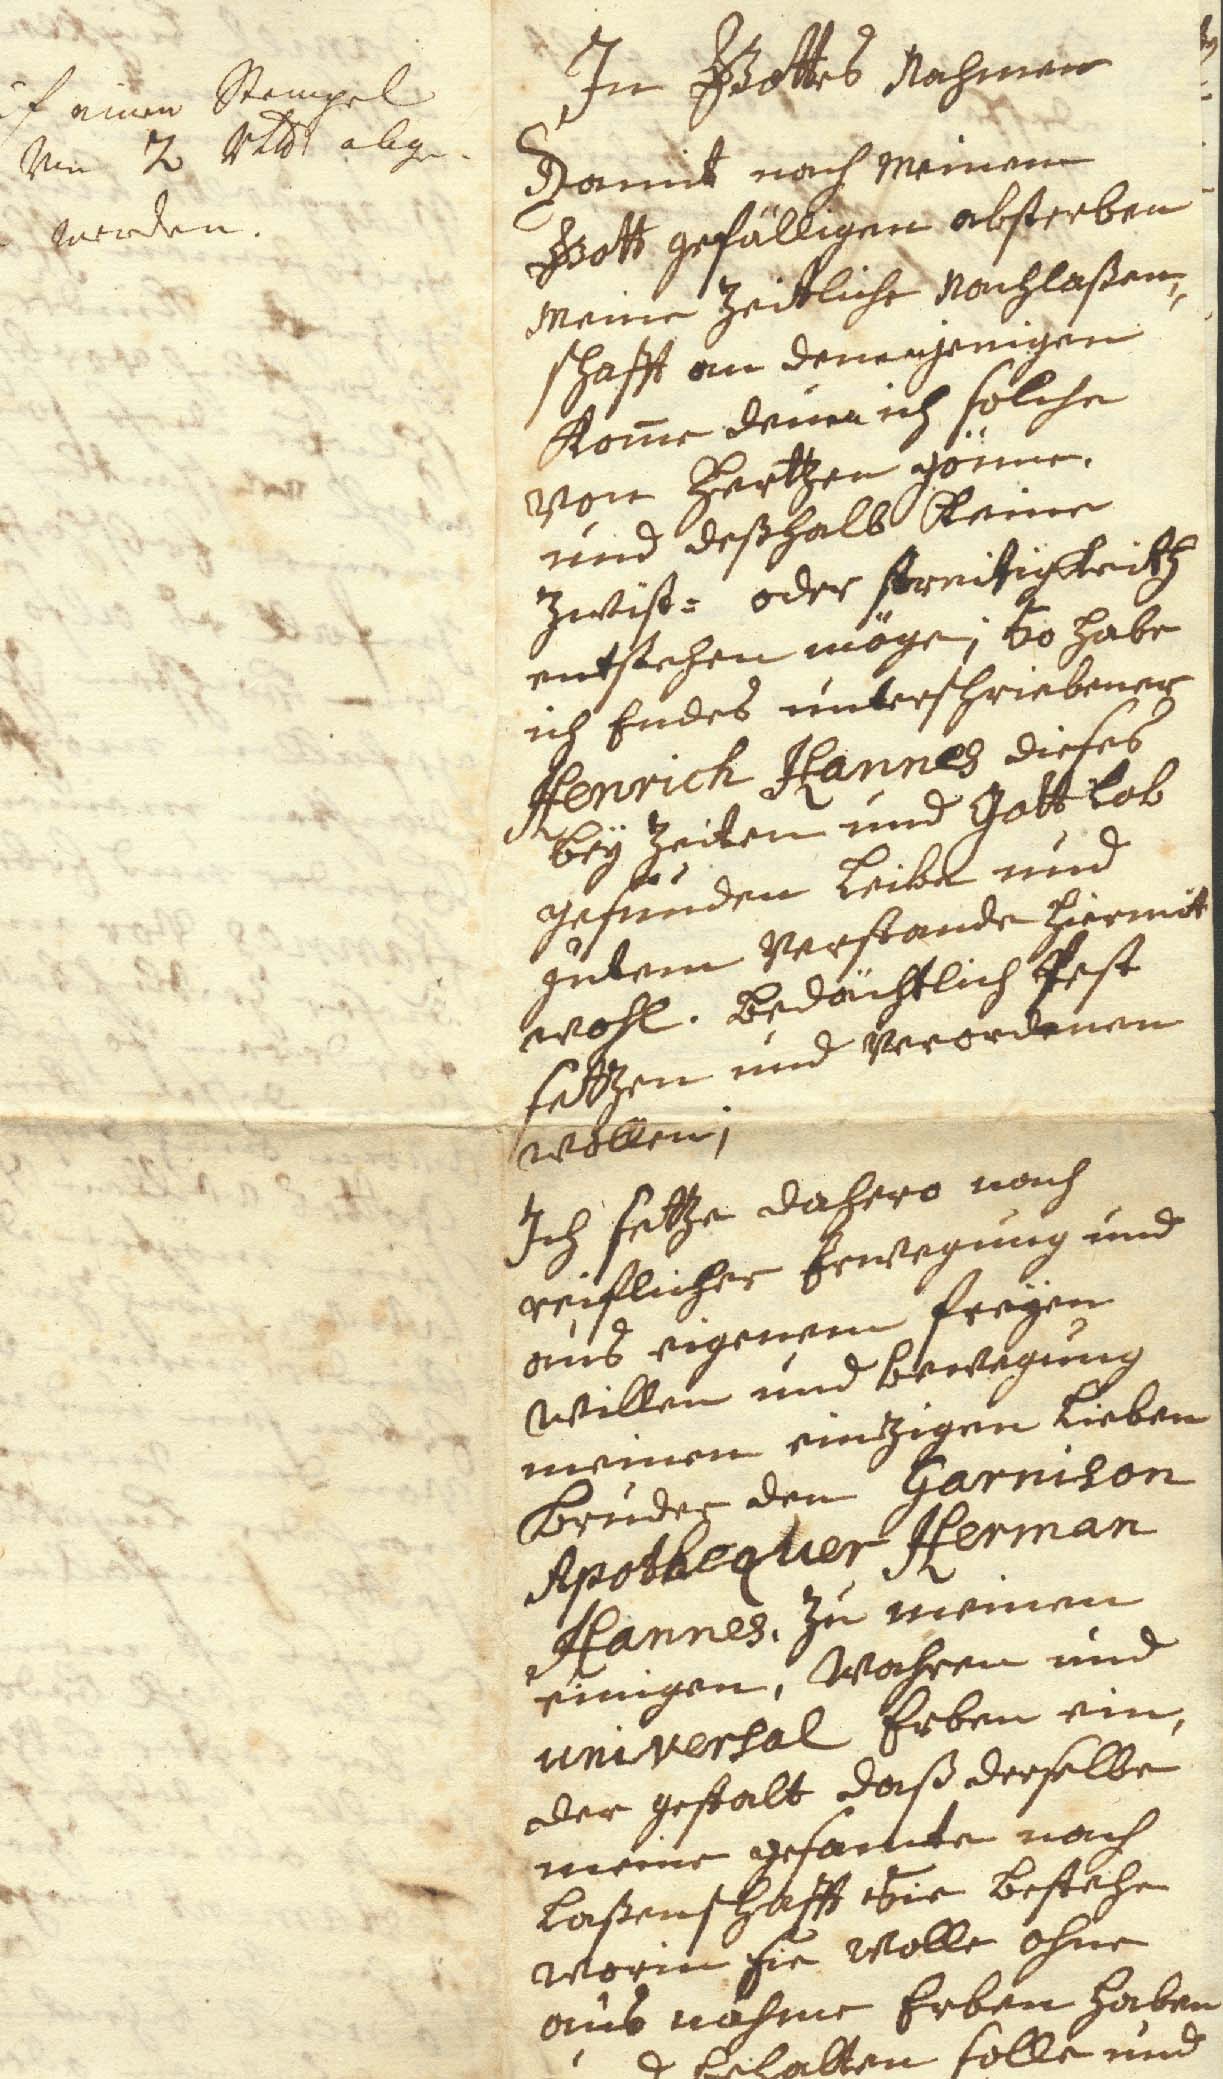 einen Stempel
von 2 rthlr abge-
werden.
In Gottes Nahmen
Damit nach meinem
Gott gefälligen absterben
meine Zeitliche Nachlaßen,
schafft an denenjenigen
Kom̄e denen ich solche
von Hertzen gönne.
und deßhalb Keine
Zwist= oder streitigkeith
entstehen möge; So habe
ich Endes unterschriebener
Henrich Hannes dieses
bey Zeiten und Gott Lob
gesunden Leibe und
gutem Verstande hiermit
wohl. Bedächtlich Fest
setzen und Verordenen
wollen;
Ich setze dahero nach
reiflicher Erwegung und
aus eigenem freyen
willen und bewegung
meinen eintzigen Lieben
Bruder den Garnison
Apothequer Herman
Hannes. zu meinen
einigen, Wahren und
universal Erben ein,
der gestalt daß derselbe
meine gesamte nach
Laßenschafft Sie bestehe
worin sie wolle ohne
aus nahme Erben haben
behalten solle und